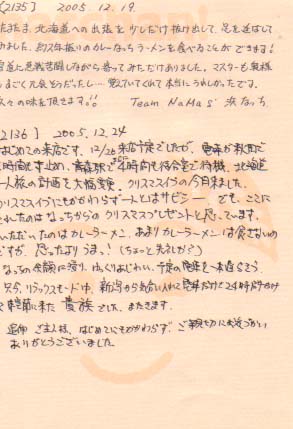 [2135] 2005.12.19.
たまたま、北海道への出張を少しだけ抜け出して、足を延ばして
みました。約2年振りのカレーなっちラーメンを食べることができます!
雪道に悪戦苦闘しながら寄ってみただけありました。マスターも奥様
もすごく元気そうだったし… 覚えていてくれて本当にうれしかったです。
久々の味を頂きます。!! Team NaMaS' 浜なっち
2136] 2005.12.24
はじめての来店です。12/23来店予定でしたが、電車が秋田で
時間も止め、青森駅でまさかの4時間も待合室で待機、北海道
一人旅の計画を大幅変更、クリスマスイヴの今日来ました。
クリスマスイヴにもかかわらず一人とはサビシー でも、ここに
これたのはなっちからのクリスマスプレゼントと思っています。
いただいたのはカレーラーメン、あまりカレーラーメンは食べないの
ですが、思ったよりうまっ!(ちょっと失礼かな?)
なっちの余韻に浸り、ゆっくりあじわい、予定の電車を一本遅らそう
只今、リラックスモード中、新潟から気合い入れて電車だけで24時間かけ
来た 貴族 でした。またきます。
追伸 ご主人様、はじめてにもかかわらず、ご親切に
ありがとうございました。